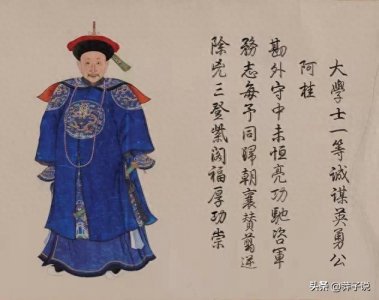 大學士一等誠謀英勇公
阿桂
勘外守中未恒亮功馳咨軍
務志每予同歸朝襄贊翦逆
除兇三登紫閣福厚功崇
头条